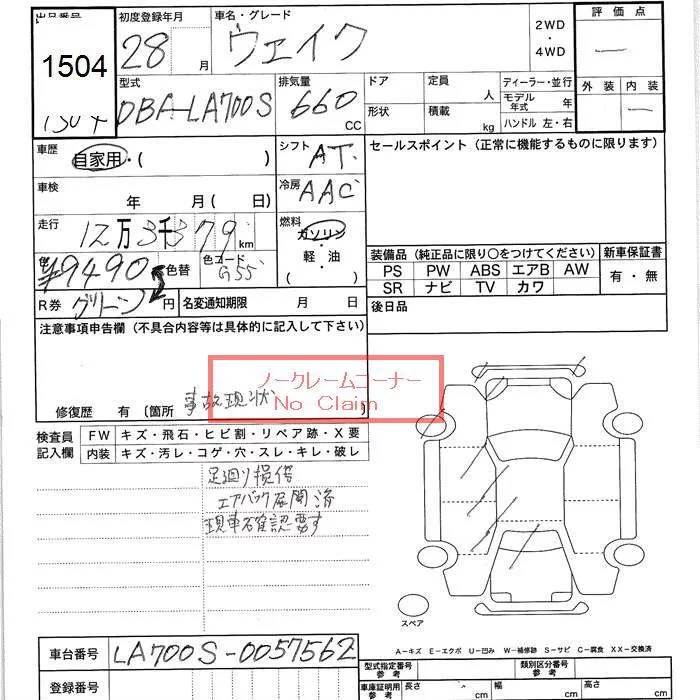 出品番号 初度登録年月 車名・グレード 2WD 評価点
1504 28 月 ウェイク ・ 4WD
型式 排気量 ドア 定員 人 ディーラー・並行 外装 内装
DBA-LA700S 660 CC 形状 積載 kg モデル年式 年
ハンドル 左・右
車歴 自家用・( ) シフト AT セールスポイント(正常に機能するものに限ります)
車検 年 月 ( 日) 冷房 AAC
走行 12万3千379 km 燃料 ガソリン
¥9490 色替 色コード G55 ・軽・油 ( )
装備品(純正品に限り○をつけてください) 新車保証書
PS PW ABS エアB AW 有・無
SR ナビ TV カワ
R券 グリーン 円 名変通知期限 月 日 後日品
注意事項申告欄(不具合内容等は具体的に記入して下さい)
ノークレームコーナー
No Claim
修復歴 有 〔箇所 事故現状
検査員記入欄 FW キズ・飛石・ヒビ割・リペア跡・X要
内装 キズ・汚レ・コゲ・穴・スレ・キレ・破レ
足廻り損傷
エアバック展開済
現車確認要す
スペア
A−キズ E−エクボ U−凹み W−補修跡 S−サビ C−腐食 XX−交換済
車台番号 LA700S-0057562
型式指定番号 参考 類別区分番号 参考
登録番号 車庫証明用 参考 長さ cm 幅 cm 高さ cm